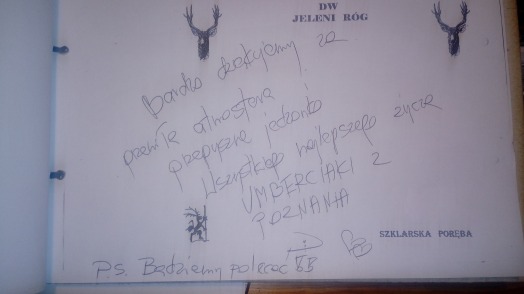 DW
JELENI RÓG
Bardzo dziękujemy za
przemiłą atmosferę i
przepyszne jedzonko
Wszystkiego najlepszego życzą
UMBERCIAKI Z
POZNANIA
SZKLARSKA PORĘBA
P.S. Będziemy polecać